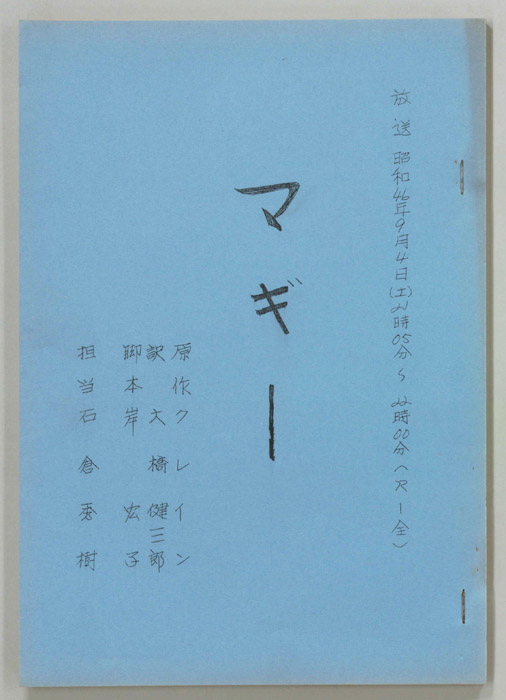 放送 昭和46年9月4日(土)21時05分~22時00分(R-全)
マギー
原作 クレイン
訳 大橋健三郎
脚本 岸宏子
担当 石倉秀樹